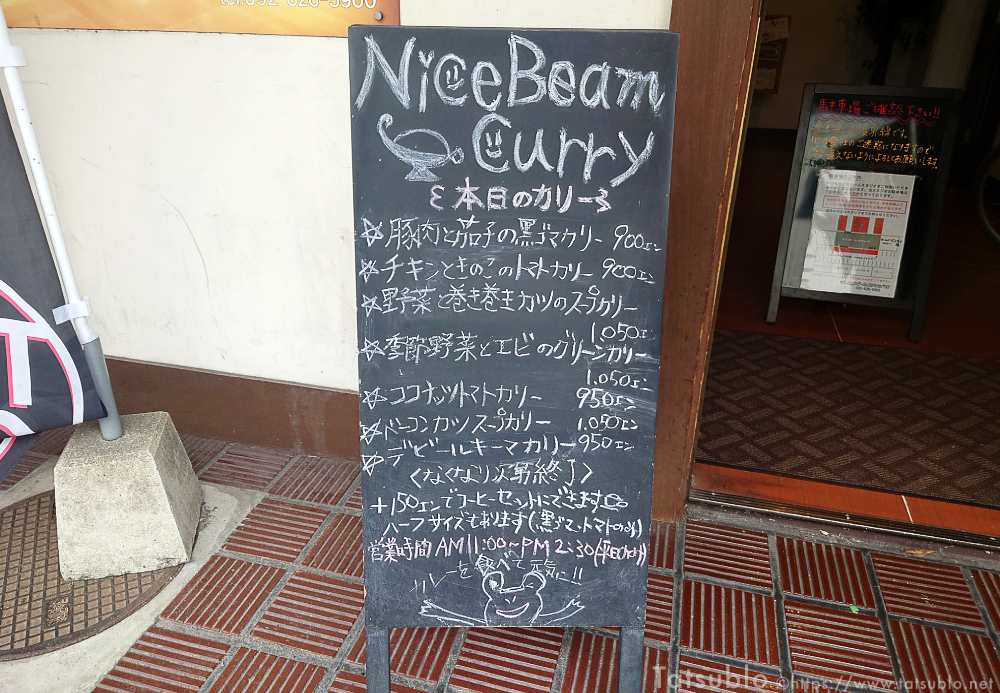 Nice Beam
Curry
本日のカリー
☆豚肉と茄子の黒ゴマカリー 900エン
☆チキンときのこのトマトカリー 900エン
☆野菜と巻き巻きカツのスープカリー
1.050エン
☆季節野菜とエビのグリーンカリー
1.050エン
☆ココナッツトマトカリー 950エン
☆ドーコンカツスープカリー 1.050エン
☆デビールキーマカリー 950エン
〈なくなり次第終了〉
+150エンでコーヒーセットにできます
ハーフサイズもあります(黒ゴマ、トマトのみ)
営業時間 AM11:00~PM2:30
カレーを食べて元気に!!
駐車場ご確認下さい!!
Tatsublo ©https://www.tatsublo.net